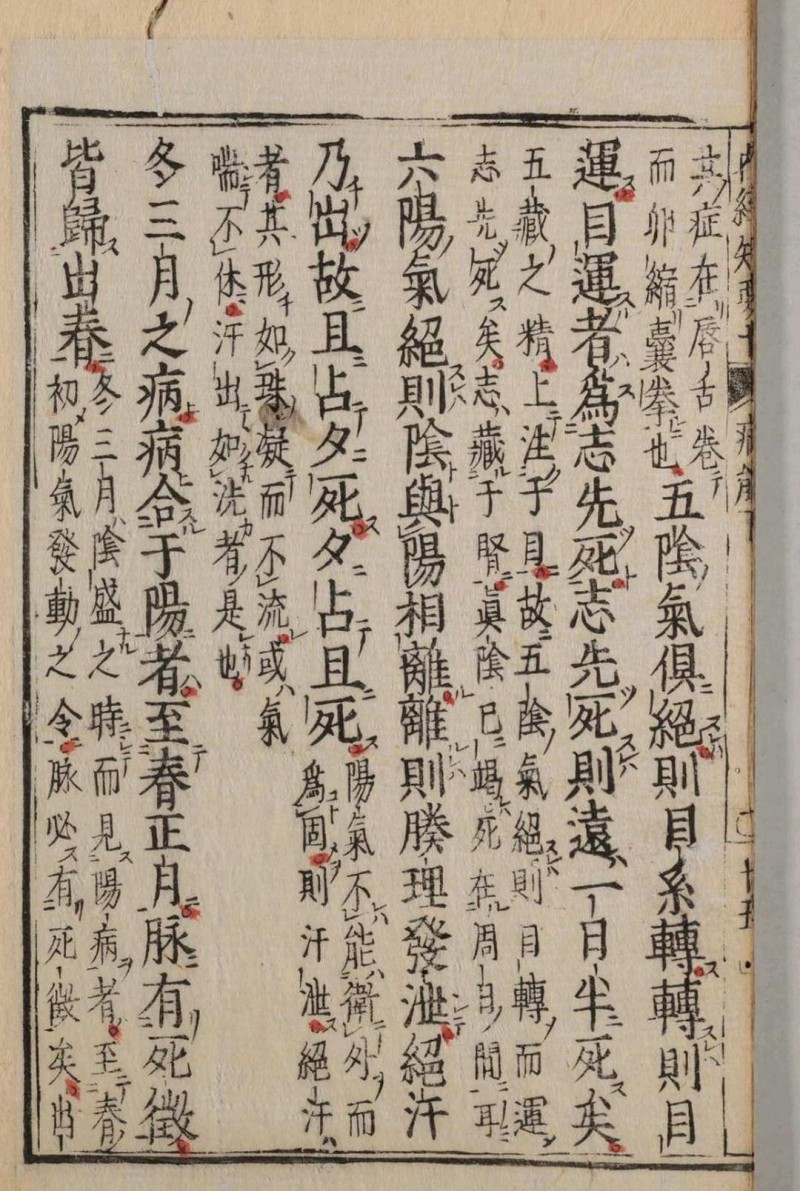 其症在唇舌卷
而卵縮囊拳也
五陰氣俱絕則目系轉轉則目
運目運者爲志先死志先死則遠一日半死矣
五藏之精上注于目故五陰氣絕則目轉而運
志先死矣志藏于腎眞陰已竭死在周日間耳
六陽氣絕則陰與陽相離離則腠理發泄絕汗
乃出故且占夕死夕占且死
陽氣不能衛外而
爲固則汗泄絕汗
者其形如珠凝而不流或氣
喘不休汗出如洗者是也
冬三月之病病合于陽者至春正月脉有死徵
皆歸出春
冬三月陰盛之時而見陽病者至春
初陽氣發動之令脉必有死徵矣出